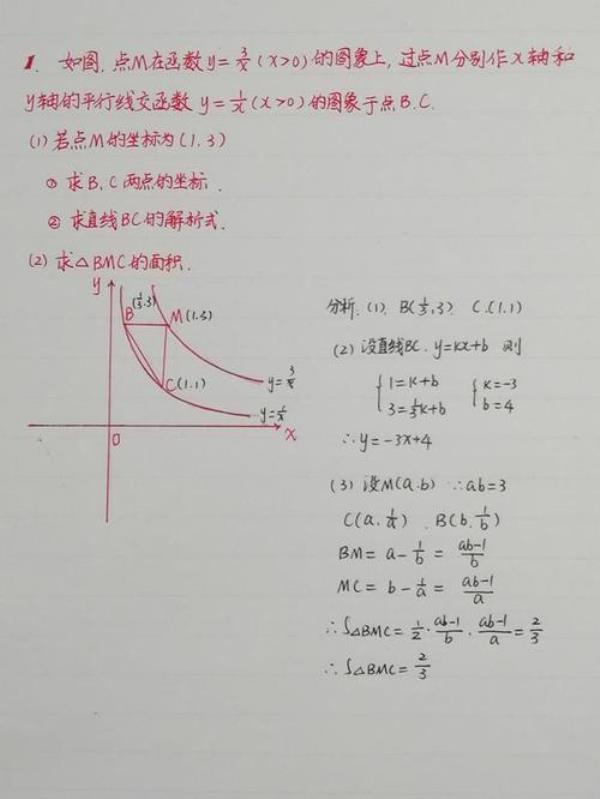 1. 如图,点M在函数y=3/x(x>0)的图象上,过点M分别作x轴和
y轴的平行线交函数 y=1/x(x>0)的图象于点B.C.
(1)若点M的坐标为(1,3)
① 求B,C两点的坐标.
② 求直线BC的解析式.
(2) 求△BMC的面积.
y
B
(1/3,3)
M(1.3)
C(1.1)
y=3/x
y=1/x
x
O
分析.(1). B(1/3,3). C.(1.1)
(2) 设直线BC.y=kx+b 则
{1=k+b {k=-3
{3=1/3k+b {b=4
∴y=-3x+4
(3) 设M(a.b) ∴ab=3
C(a.1/a) . B(b,1/b)
BM= a-1/b = ab-1/b
MC= b-1/a = ab-1/a
∴S△BMC=1/2·ab-1/b·ab-1/a=2/3
∴S△BMC=2/3